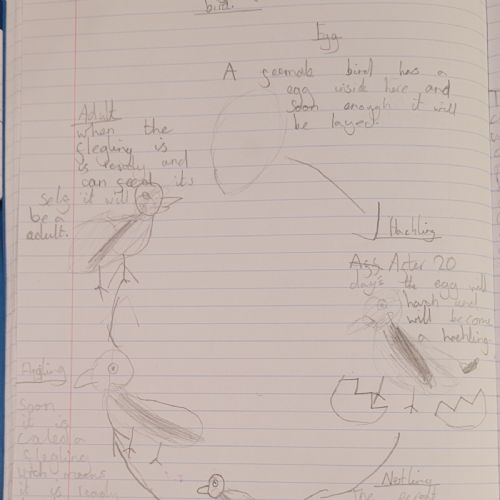 bird.
Egg
A feemale bird has a
egg inside here and
soon enough it will
be layed.
Adult
when the
flegling is
is ready and
can feed its
self it will
be a
adult.
Hachling
After 20
days the egg will
hach and
will be come
a hachling.
Soon
it is
called a
flegling
wich means
it is ready
Nestling
The